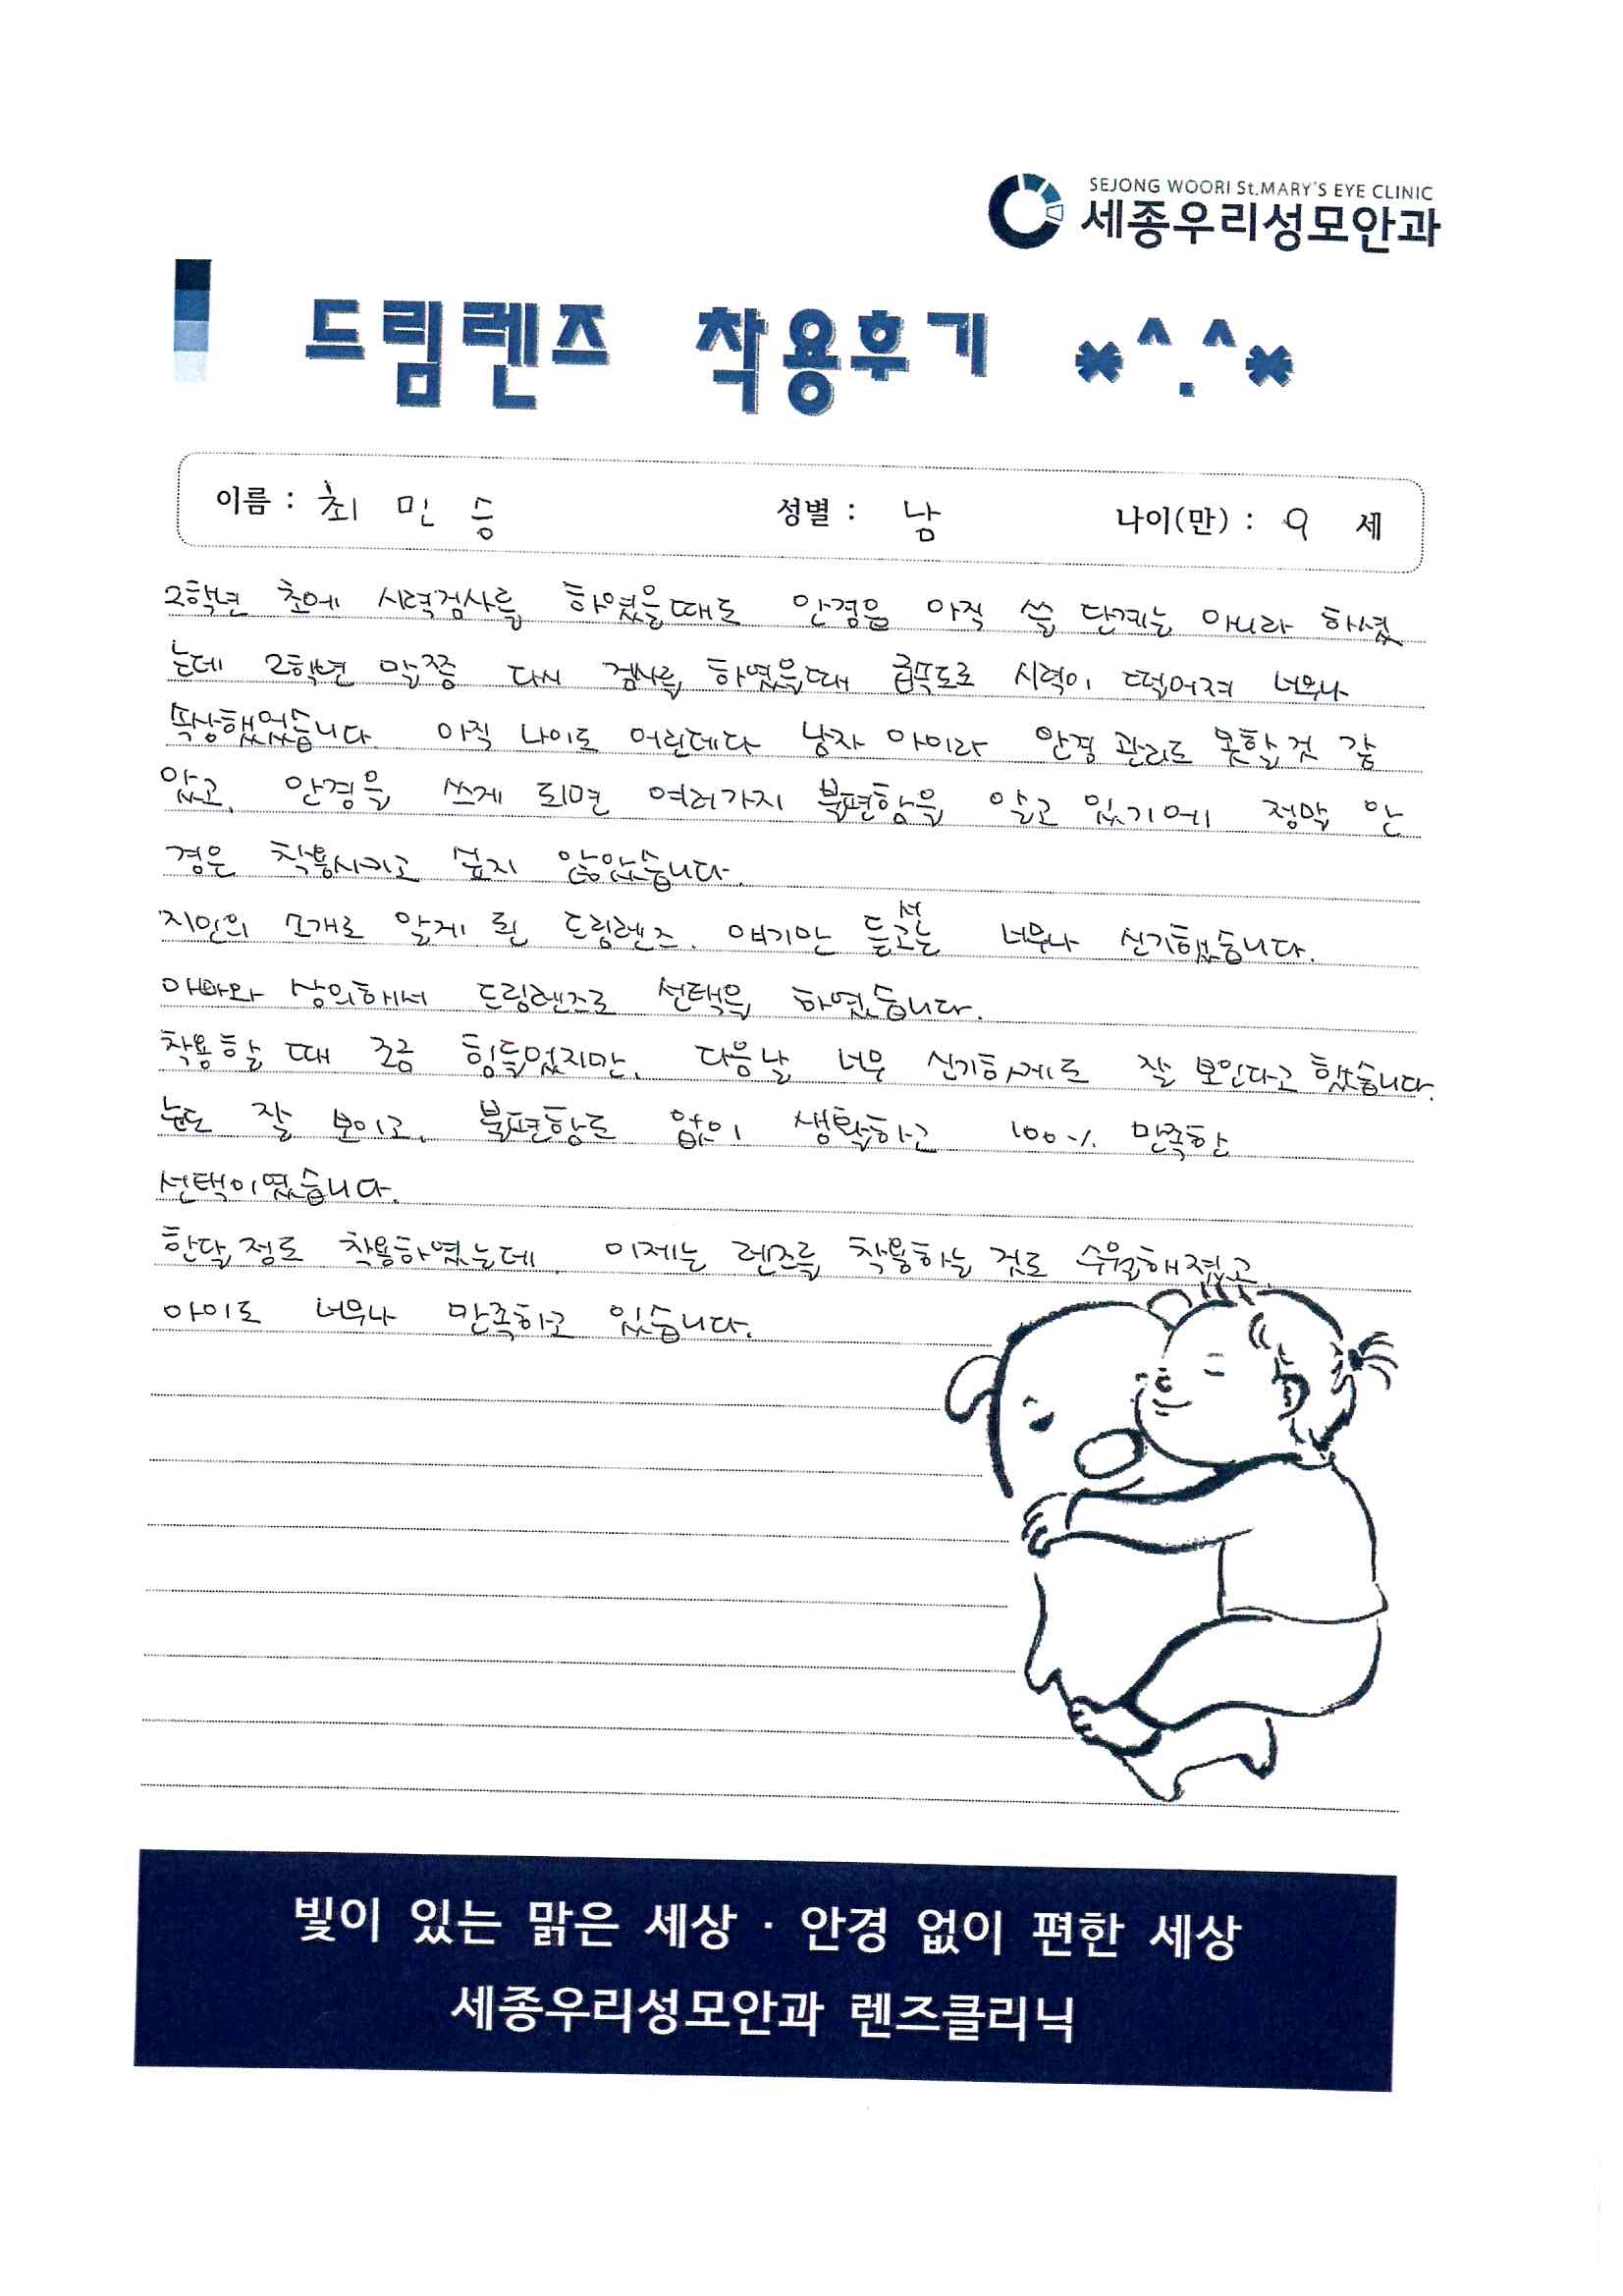 SEJONG WOORI St.MARY'S EYE CLINIC
세종우리성모안과
드림렌즈 착용후기 *^.^*
이름 : 최 민 승 성별 : 남 나이(만) : 9 세
2학년 초에 시력검사를 하였을때도 안경을 아직 쓸 단계는 아니라 하셨
는데 2학년 말쯤 다시 검사를 하였을때 급속도로 시력이 떨어져 너무나
속상했었습니다. 아직 나이도 어린데다 남자 아이라 안경 관리도 못할것 같
았고, 안경을 쓰게 되면 여러가지 불편함을 알고 있기에 정말 안
경은 착용시키고 싶지 않았습니다.
지인의 소개로 알게 된 드림렌즈. 얘기만 듣고선는 너무나 신기했습니다.
아빠와 상의해서 드림렌즈로 선택을 하였습니다.
착용할 때 조금 힘들었지만, 다음날 너무 신기하게도 잘 보인다고 했습니다.
눈도 잘 보이고, 불편함도 없이 생활하고 100% 만족한
선택이였습니다.
한달 정도 착용하였는데, 이제는 렌즈를 착용하는 것도 수월해졌고,
아이도 너무나 만족하고 있습니다.
빛이 있는 맑은 세상 · 안경 없이 편한 세상
세종우리성모안과 렌즈클리닉